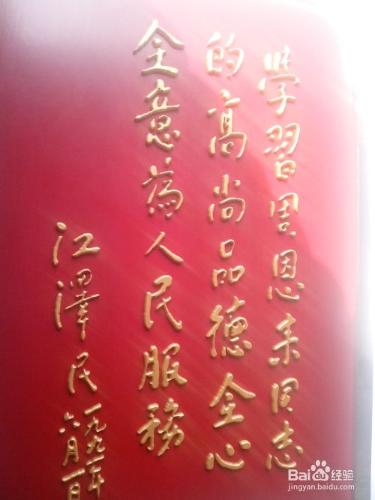 學習周恩来同志
的高尚品德全心
全意為人民服務
江澤民
一九九
六月
Baidu 经验
jingyan.baidu.com